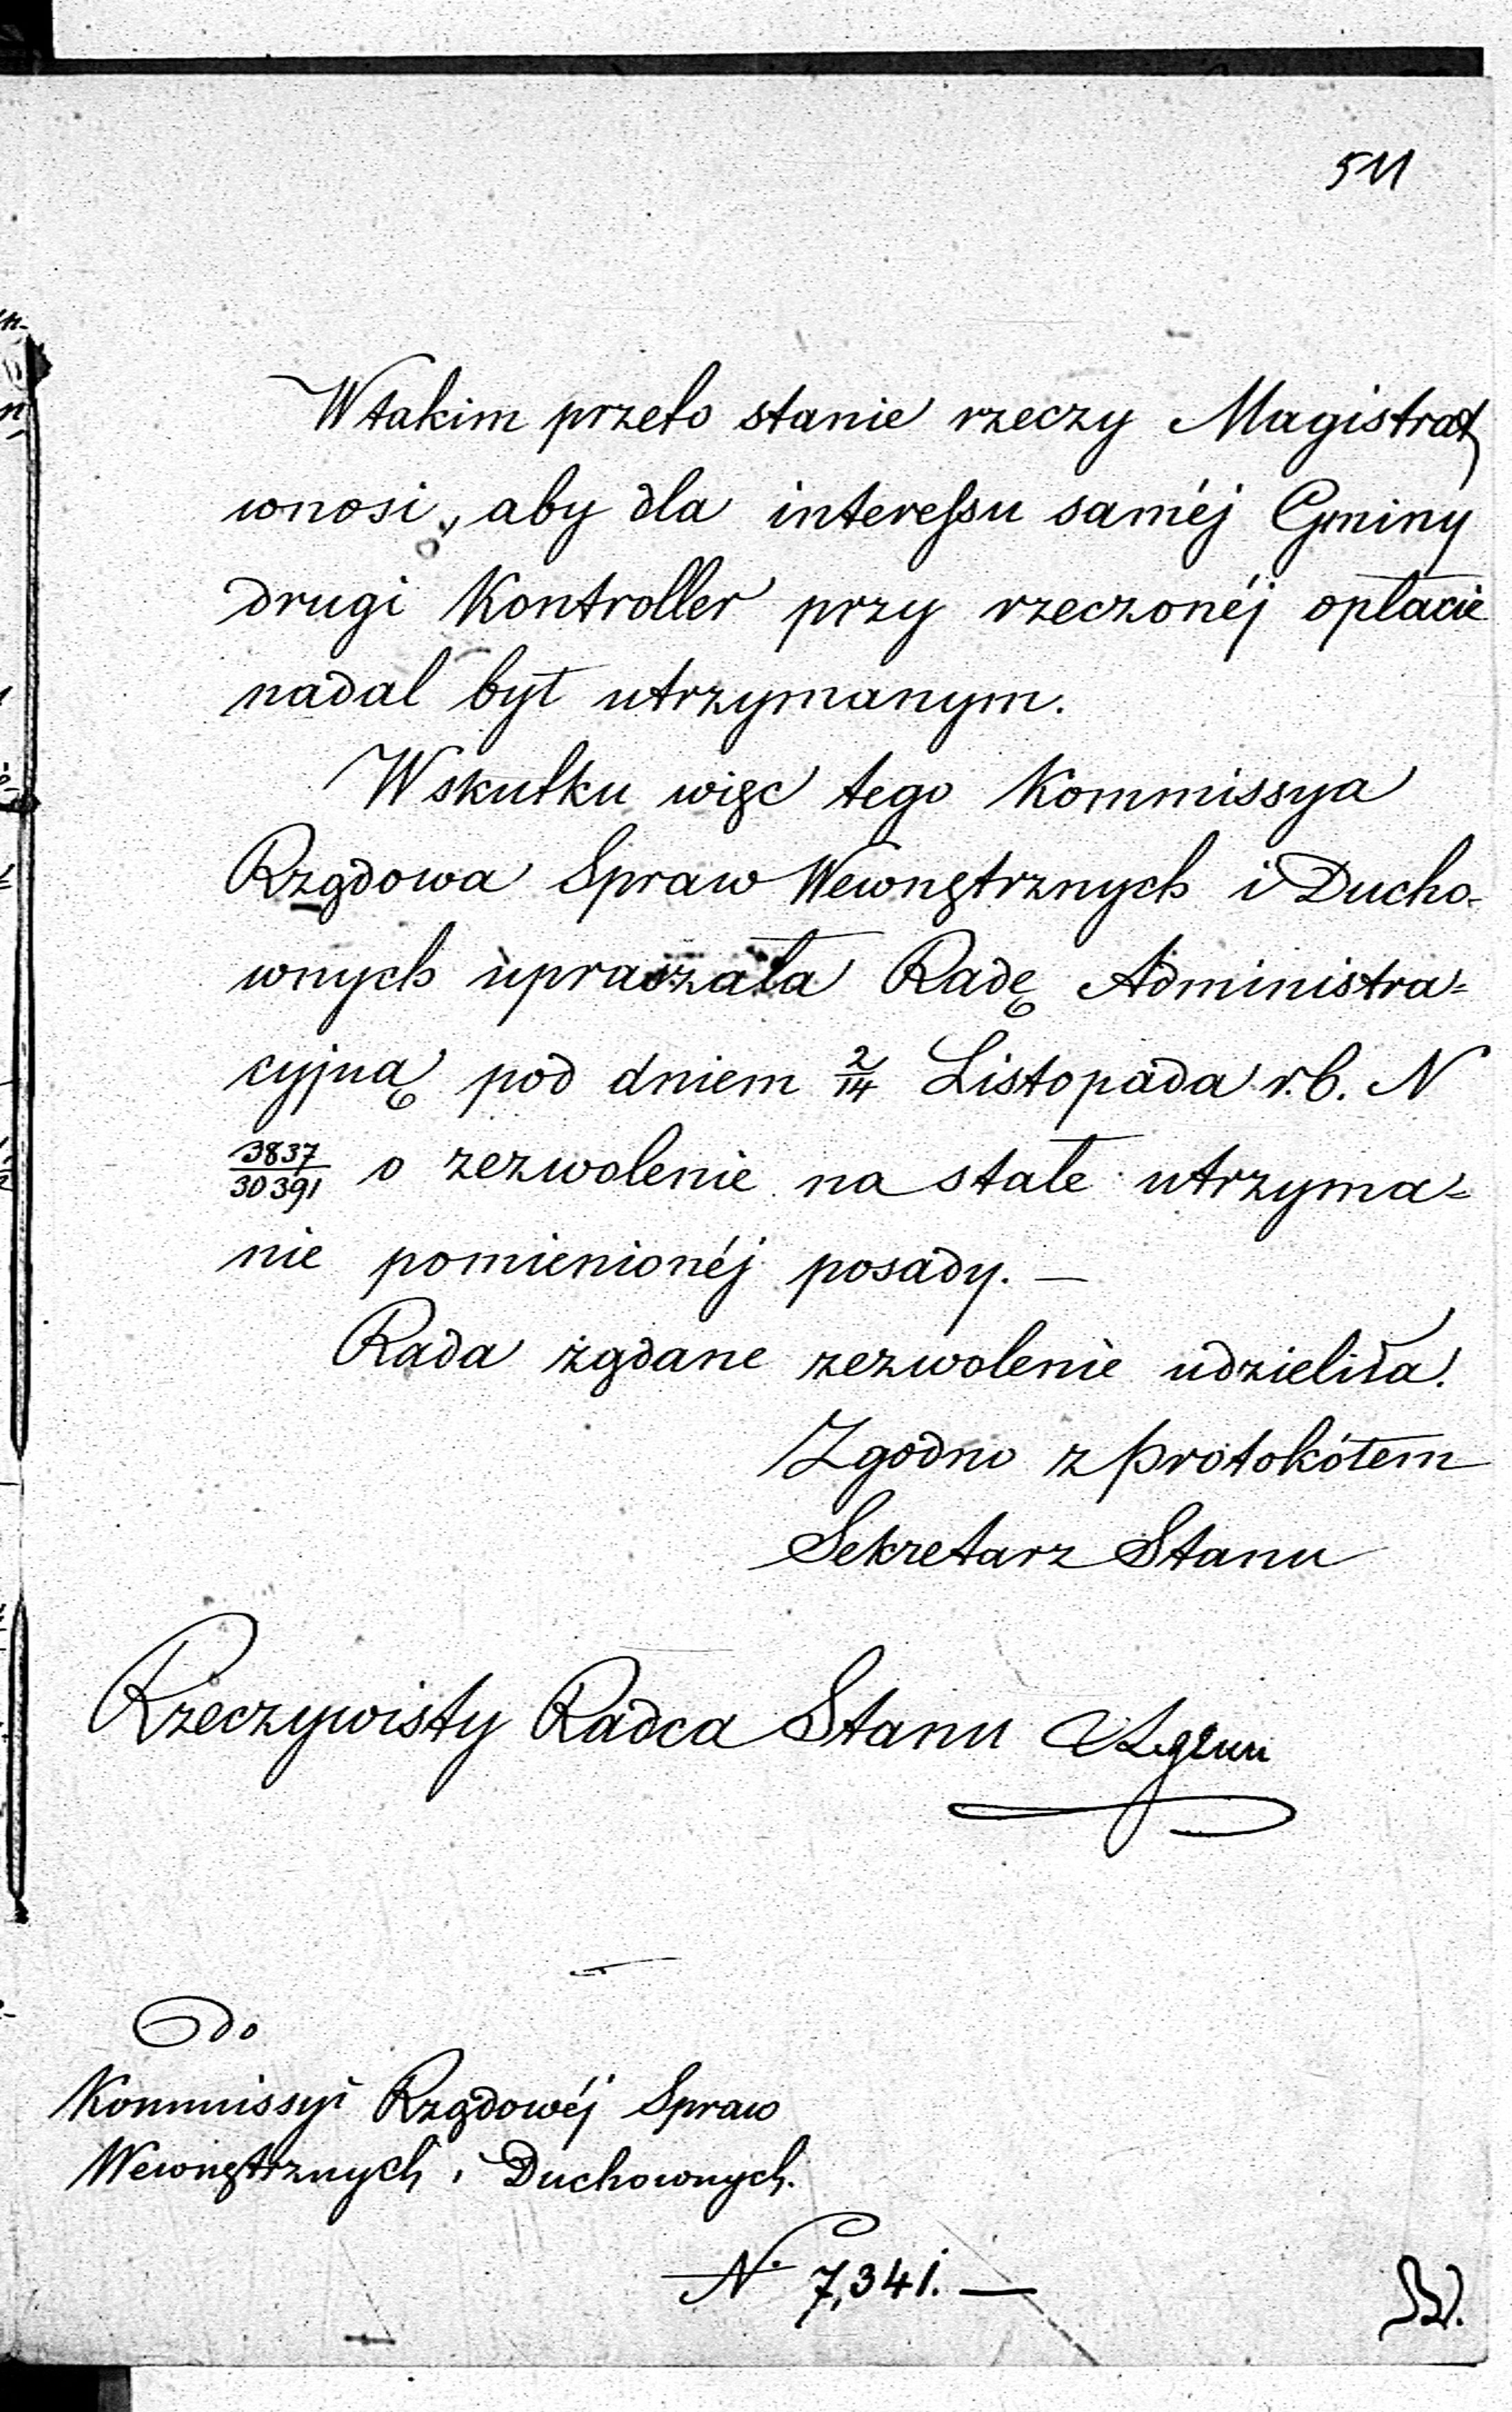 511
W takim przeto stanie rzeczy Magistrat
wnosi, aby dla interessu saméj Gminy
drugi Kontroller przy rzeczonéj opłacie
nadal był utrzymanym.
W skutku więc tego Kommissya
Rządowa Spraw Wewnętrznych i Ducho-
wnych upraszała Radę Administra-
cyjną pod dniem 2/14 Listopada r.b. N
3837/30391 o zezwolenie na stałe utrzyma-
nie pomienionéj posady. —
Rada żądane zezwolenie udzieliła.
Zgodno z protokółem
Sekretarz Stanu
Rzeczywisty Radca Stanu
Do
Kommissyi Rządowéj Spraw
Wewnętrznych i Duchownych.
N. 7,341. —